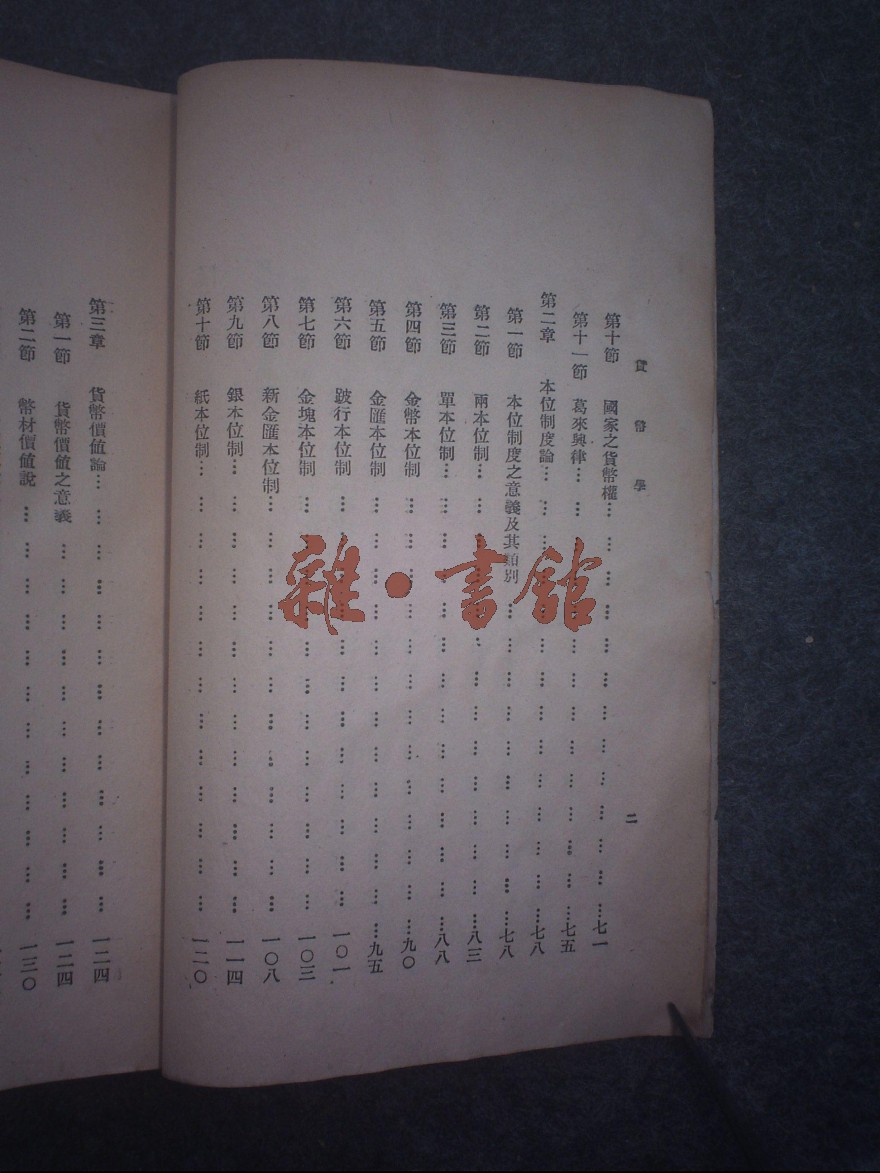 貨幣學 二
第十節 國家之貨幣權…………………………七一
第十一節 葛來興律…………………………七五
第二章 本位制度論…………………………七八
第一節 本位制度之意義及其類別…………………七八
第二節 兩本位制…………………………八三
第三節 單本位制…………………………八八
第四節 金幣本位制…………………………九〇
第五節 金匯本位制…………………………九五
第六節 跛行本位制…………………………一〇一
第七節 金塊本位制…………………………一〇三
第八節 新金匯本位制…………………………一〇八
第九節 銀本位制…………………………一一四
第十節 紙本位制…………………………一二〇
第三章 貨幣價值論…………………………一二四
第一節 貨幣價值之意義…………………………一二四
第二節 幣材價值說…………………………一三〇
雜·書館